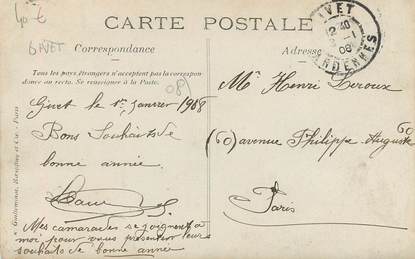 40 €
GIVET
CARTE POSTALE
Correspondance
Adresse
Tous les pays étrangers n'acceptent pas la correspon-
dance au recto. Se renseigner à la Poste.
(08)
Givet le 1er Janvier 1908
Bons Souhaits de
bonne année.
Mes camarades se joignent à
moi pour vous présenter leurs
souhaits de bonne année
GIVET
12 40
1
08
ARDENNES
Mr Henri Leroux
(60) avenue Philippe-Auguste 60
Paris
Paris